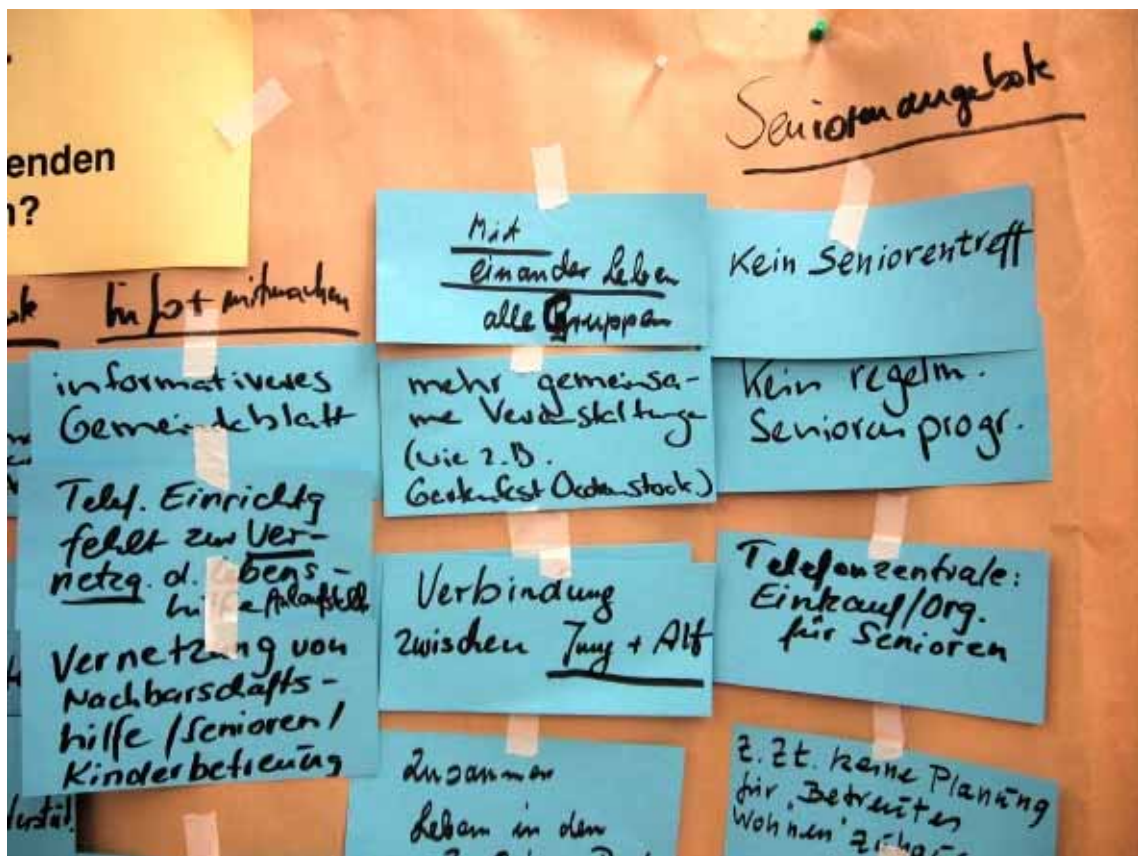 enden
?
Info + mitmachen
informativeres
Gemeindeblatt
Telef. Einrichtg
fehlt zur Ver-
netzg. d.
Anlaufstelle
Vernetzung von
Nachbarschafts-
hilfe / Senioren /
Kinderbetreuung
Mit
einander Leben
alle Gruppen
mehr gemeinsa-
me Veranstaltunge
(wie z.B.
Verbindung
zwischen Jung + Alt
Zusammen
Leben in den
Seniorenangebote
Kein Seniorentreff
Kein regelm.
Seniorenprogr.
Telefonzentrale:
Einkauf/Org.
für Senioren
z. Zt. keine Planung
für "Betreutes
Wohnen"